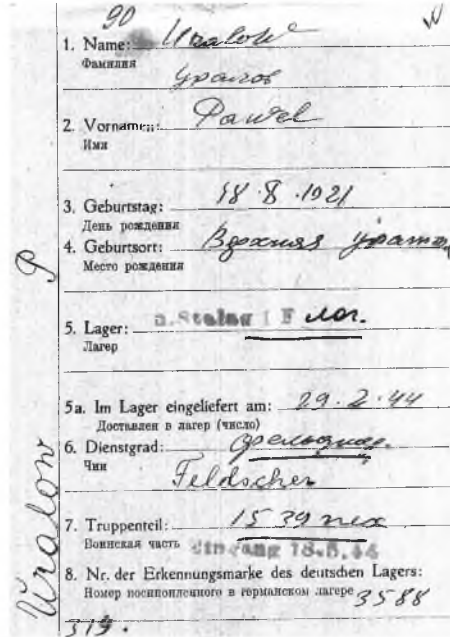 90 W
1. Name: Uralow
Фамилия
Уралов
2. Vornamen: Pawel
Имя
3. Geburtstag: 18.8.1921
День рождения
4. Geburtsort:
Место рождения
5. Lager: Stalag I F лаг.
Лагер
5a. Im Lager eingeliefert am: 29.2.44
Доставлен в лагер (число)
6. Dienstgrad: фельдшер.
Чин
Feldscher
7. Truppenteil: 1539
Воинская часть Eingang 18.5.44
8. Nr. der Erkennungsmarke des deutschen Lagers:
Номер военнопленного в германском лагере 3588
319.
Uralow P